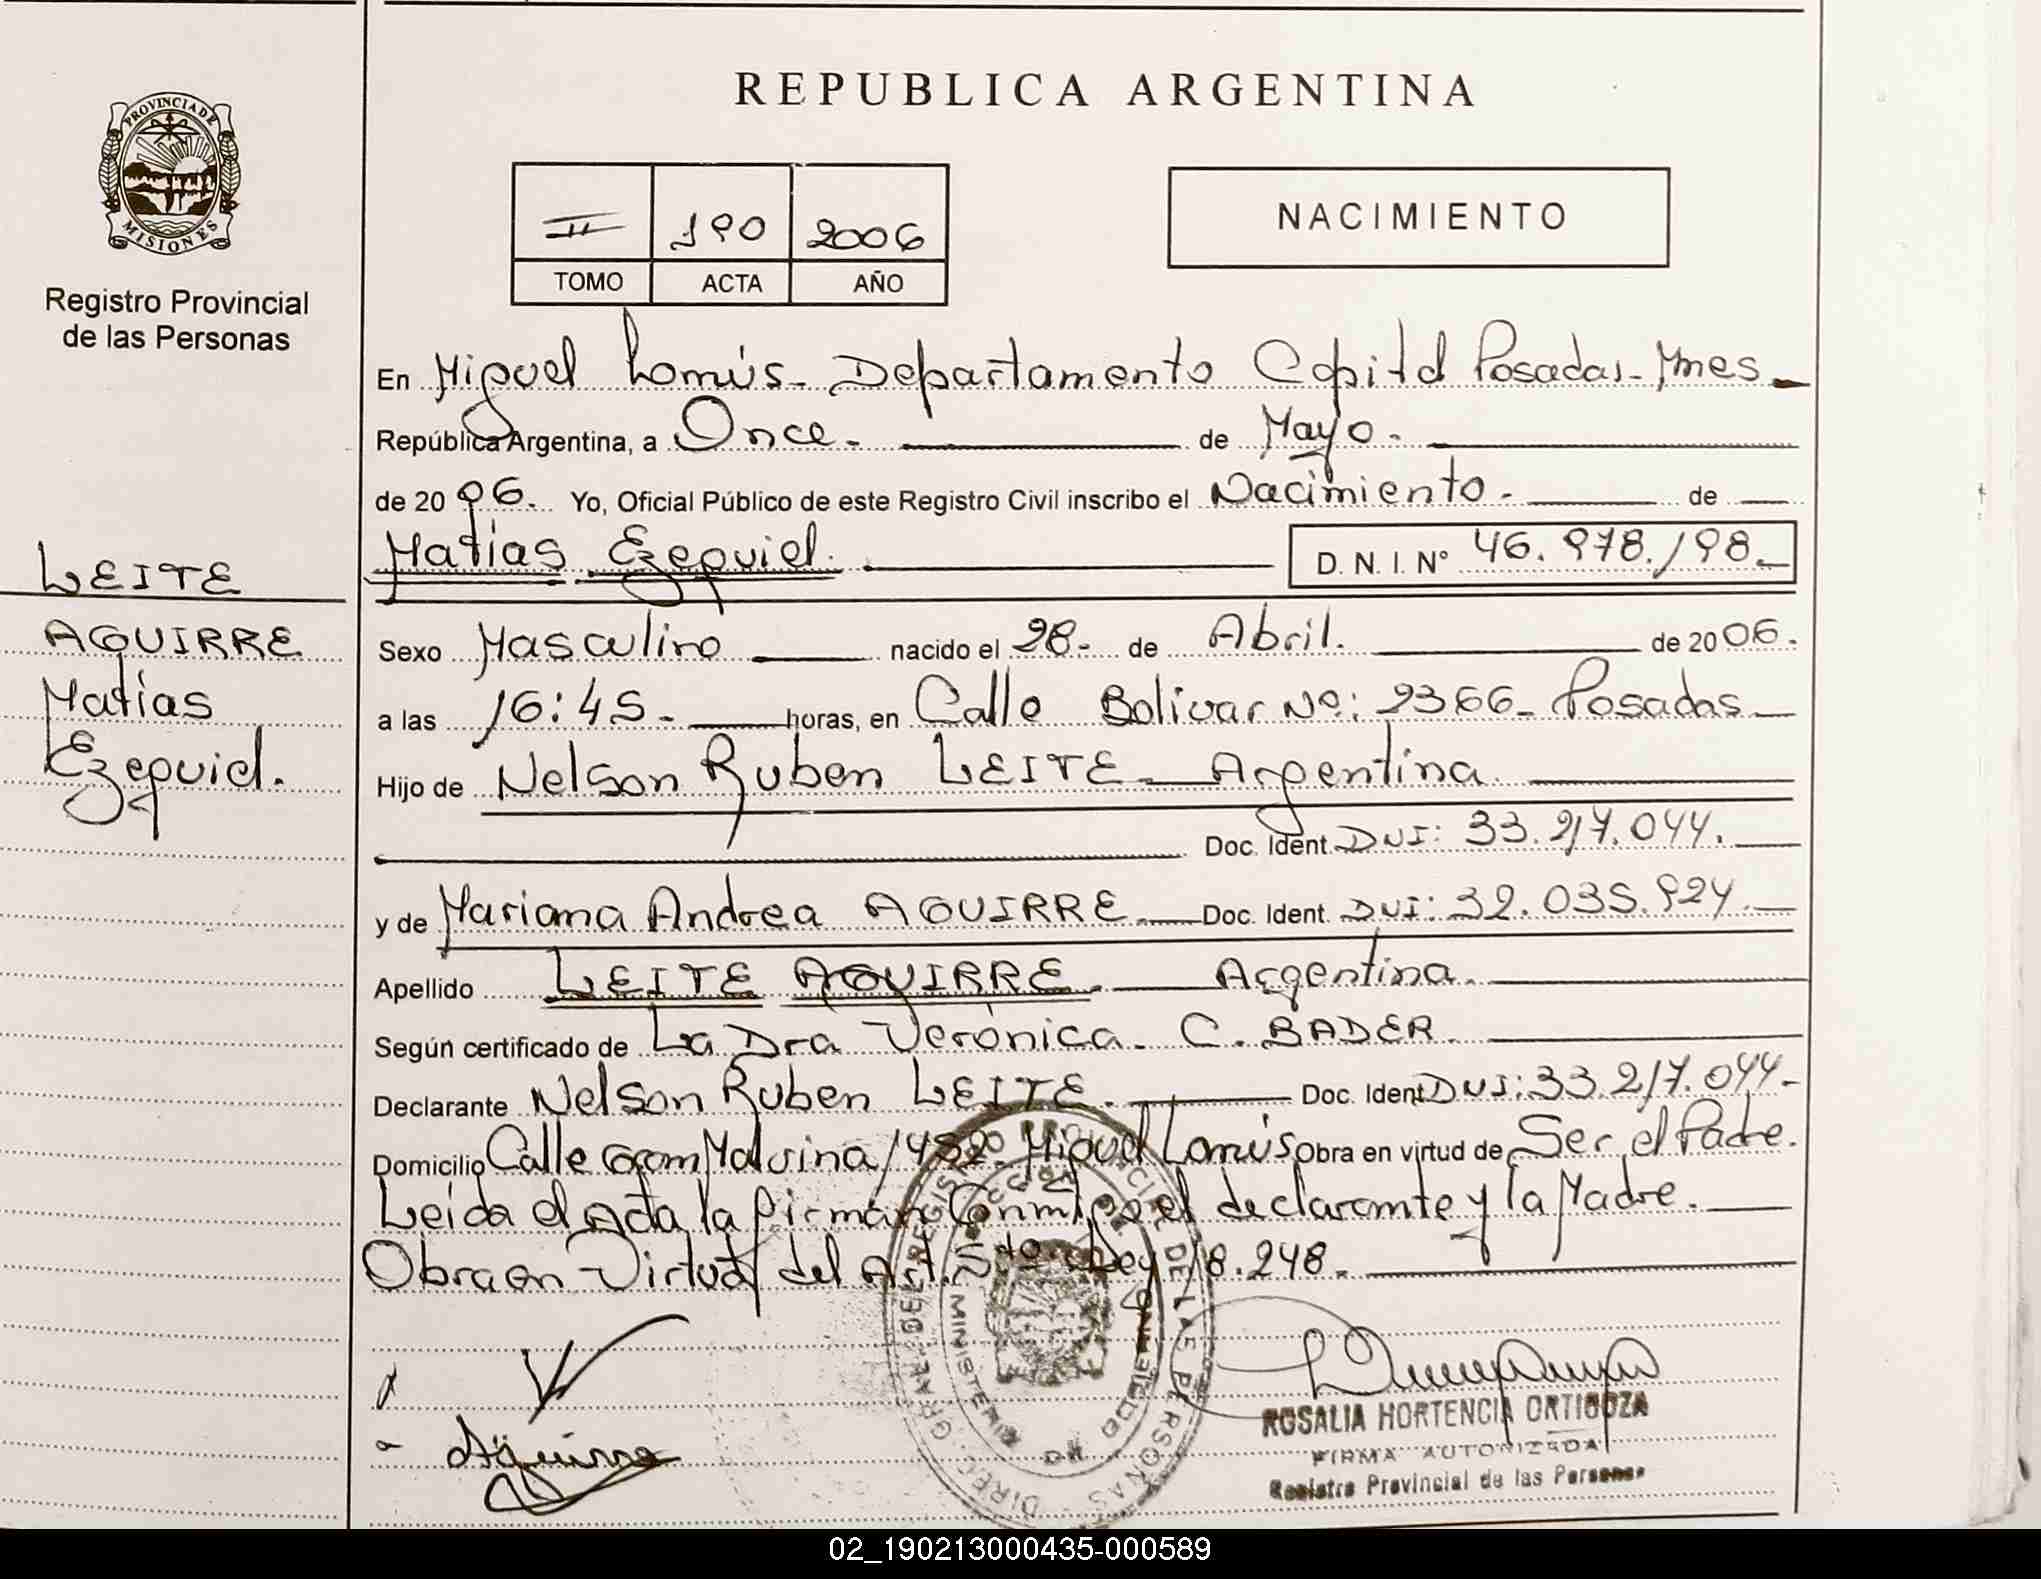 REPUBLICA ARGENTINA
PROVINCIA DE
MISIONES
Registro Provincial
de las Personas
II 190 2006
TOMO ACTA AÑO
NACIMIENTO
En Miguel Lanús - Departamento Capital Posadas - Mnes
República Argentina, a Once. de Mayo.
de 2006. Yo, Oficial Público de este Registro Civil inscribo el Nacimiento. de
Matías Ezequiel. D. N. I. Nº 46.978.198.
LEITE
AGUIRRE
Matías
Ezequiel.
Sexo Masculino nacido el 28- de Abril. de 2006.
a las 16:45. horas, en Calle Bolivar Nº: 2366 - Posadas
Hijo de Nelson Ruben LEITE - Argentina.
Doc. Ident. DNI: 33.217.044.
y de Mariana Andrea AGUIRRE. Doc. Ident. DNI: 32.035.924.
Apellido LEITE AGUIRRE. Argentina.
Según certificado de La Dra Verónica. C. BADER.
Declarante Nelson Ruben LEITE. Doc. Ident DNI: 33.217.044-
Domicilio Calle Gran Malvina 1452 - Miguel Lanús Obra en virtud de Ser el Padre.
Leída el Acta la firman Conmigo el declarante y la Madre.
Obra en Virtud del Art. 5to Ley 18.248.
Aguirre
DIREC. GRAL. DEL REGISTRO PROVINCIAL DE LAS PERSONAS
MINISTERIO DE GOBIERNO
ROSALIA HORTENCIA ORTIGOZA
FIRMA AUTORIZADA
Registro Provincial de las Personas
02_190213000435-000589